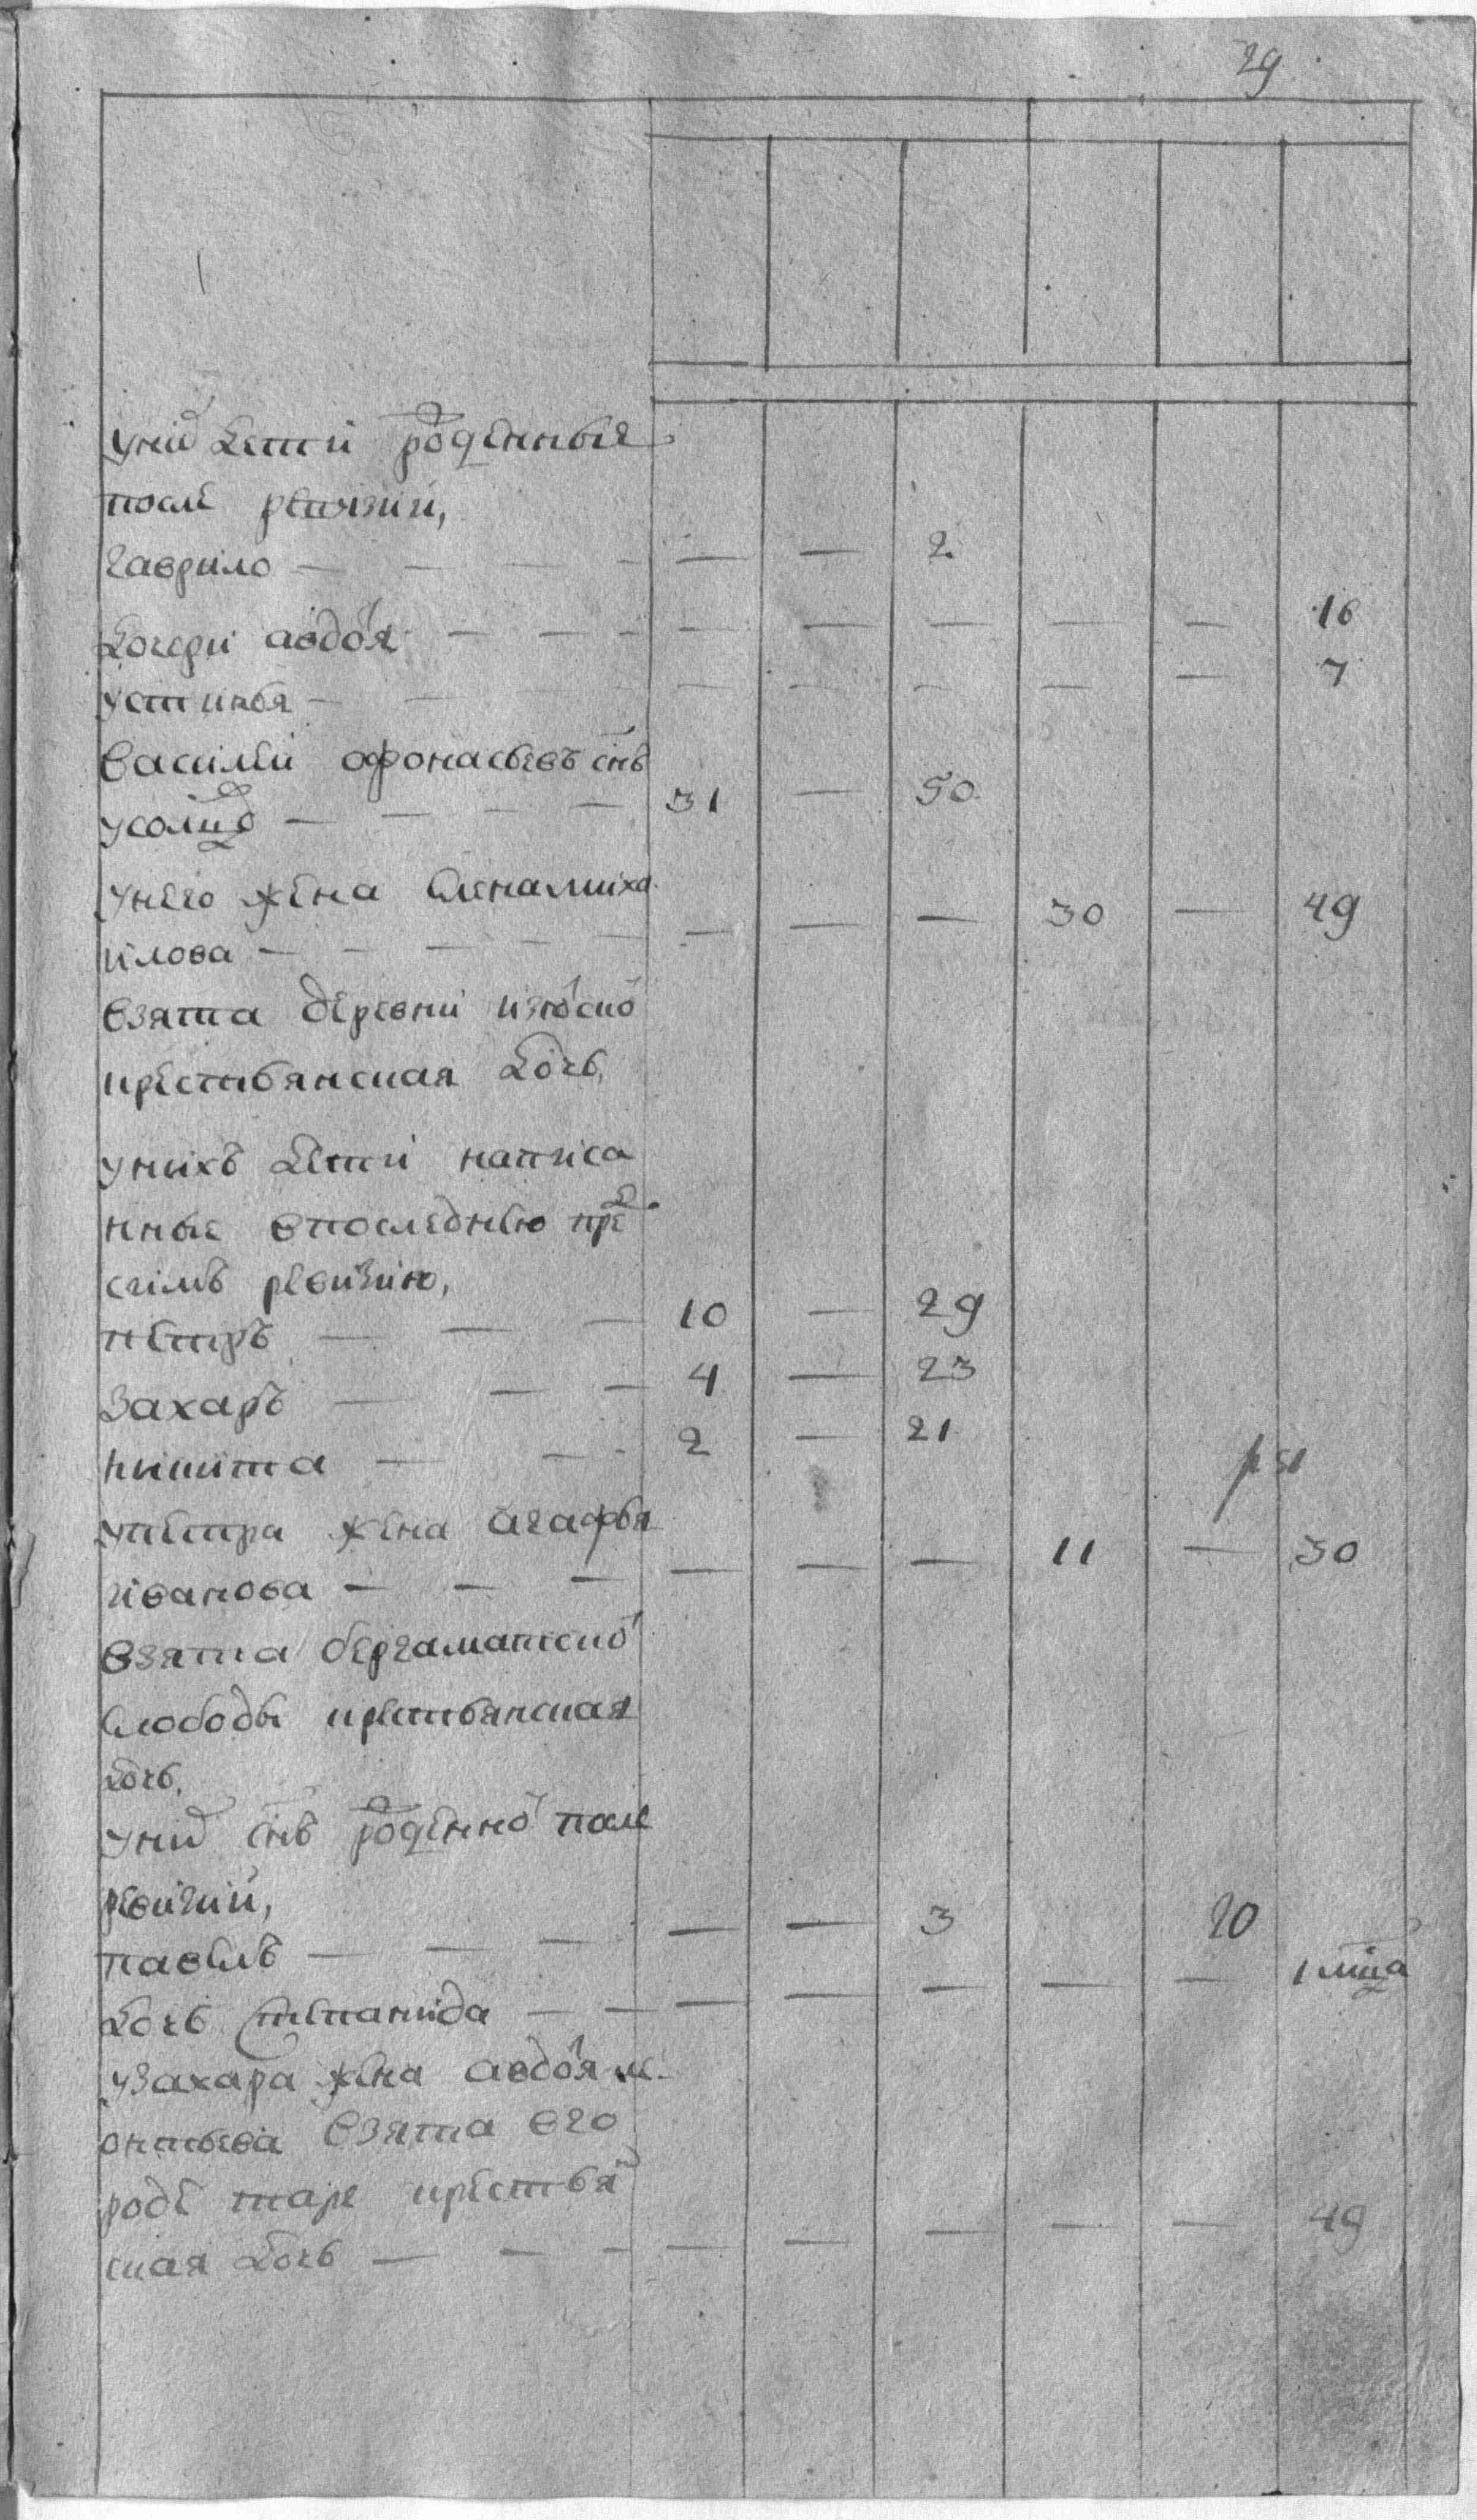 29
У них дети рожденныя
после ревизии,
Гаврило — — — — — — 2
дочери Авдотья — — — — — — — — 16
Устинья — — — — — — — 7
Василей Афонасьевъ снъ
Усолцо — — — — 31 — 50
у него жена Олена Миха
илова — — — — — — — — 30 — 49
взята деревни
крестьянская дочь,
у нихъ дети написа
нные впоследнею пре
сеимъ ревизию,
Петръ — — — 10 — 29
Захаръ — — — 4 — 23
Никита — — — 2 — 21
у Петра жена Агафья
Иванова — — — — — — 11 — 30
взята Бергамацкой
Слободы крестьянская
дочь,
у них снъ рожденной после
ревизии,
Павелъ — — — — — 3
20
дочь Степанида — — — — — — — 1 мца
у Захара жена Авдотья Ле
онтьева взята в го
роде Таре крестьян
ская дочь — — — — — — — — 49